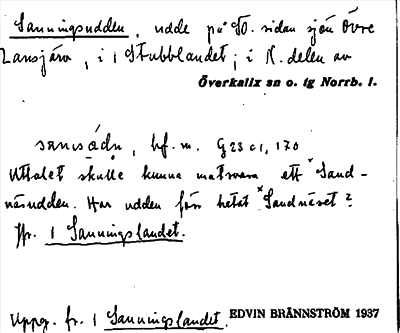 Sanningsudden, udde på SO. sidan sjön Övre
Lansjärv, i 1 Stubblandet; i N. delen av
Överkalix sn o. tg Norrb. l.
bf. m. G23 c1, 170
Uttalet skulle kunna motsvara ett *Sand-
näsudden. Har udden förr hetat *Sandnäset?
Jfr. 1 Sanningslandet.
Uppg. fr. 1 Sanningslandet. EDVIN BRÄNNSTRÖM 1937